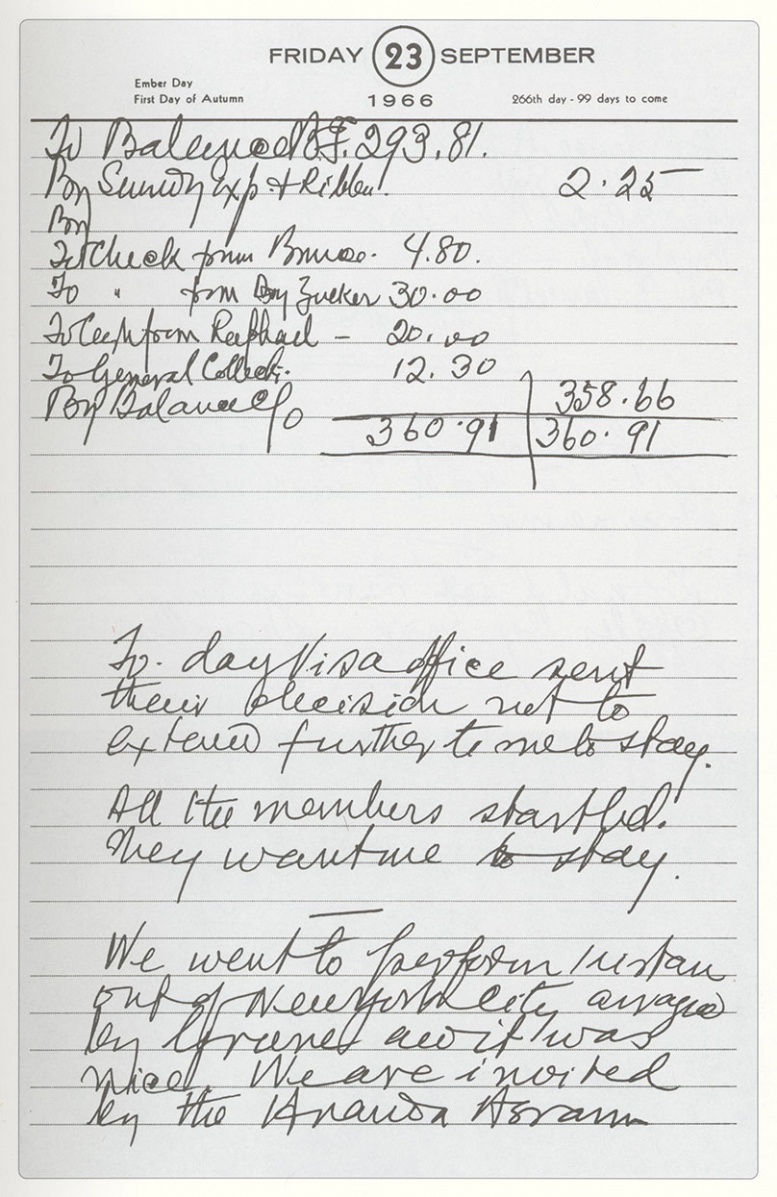 FRIDAY 23 SEPTEMBER
Ember Day
First Day of Autumn
1966
266th day - 99 days to come
To Balance B.F. 293.81.
By Sundry Exp. + Ribbon. 2.25
By
To Check from Bruce. 4.80.
To " from By Zucker 30.00
To Cash from Raphael - 20.00
To General Collecti. 12.30
By Balance C/o 358.66
360.91 360.91
To-day Visa office sent
their decision not to
extend further to me to stay.
All the members startled.
They want me to stay.
We went to perform
out of Newyork City
by and it was
nice. We are invited
by the Ananda Asram